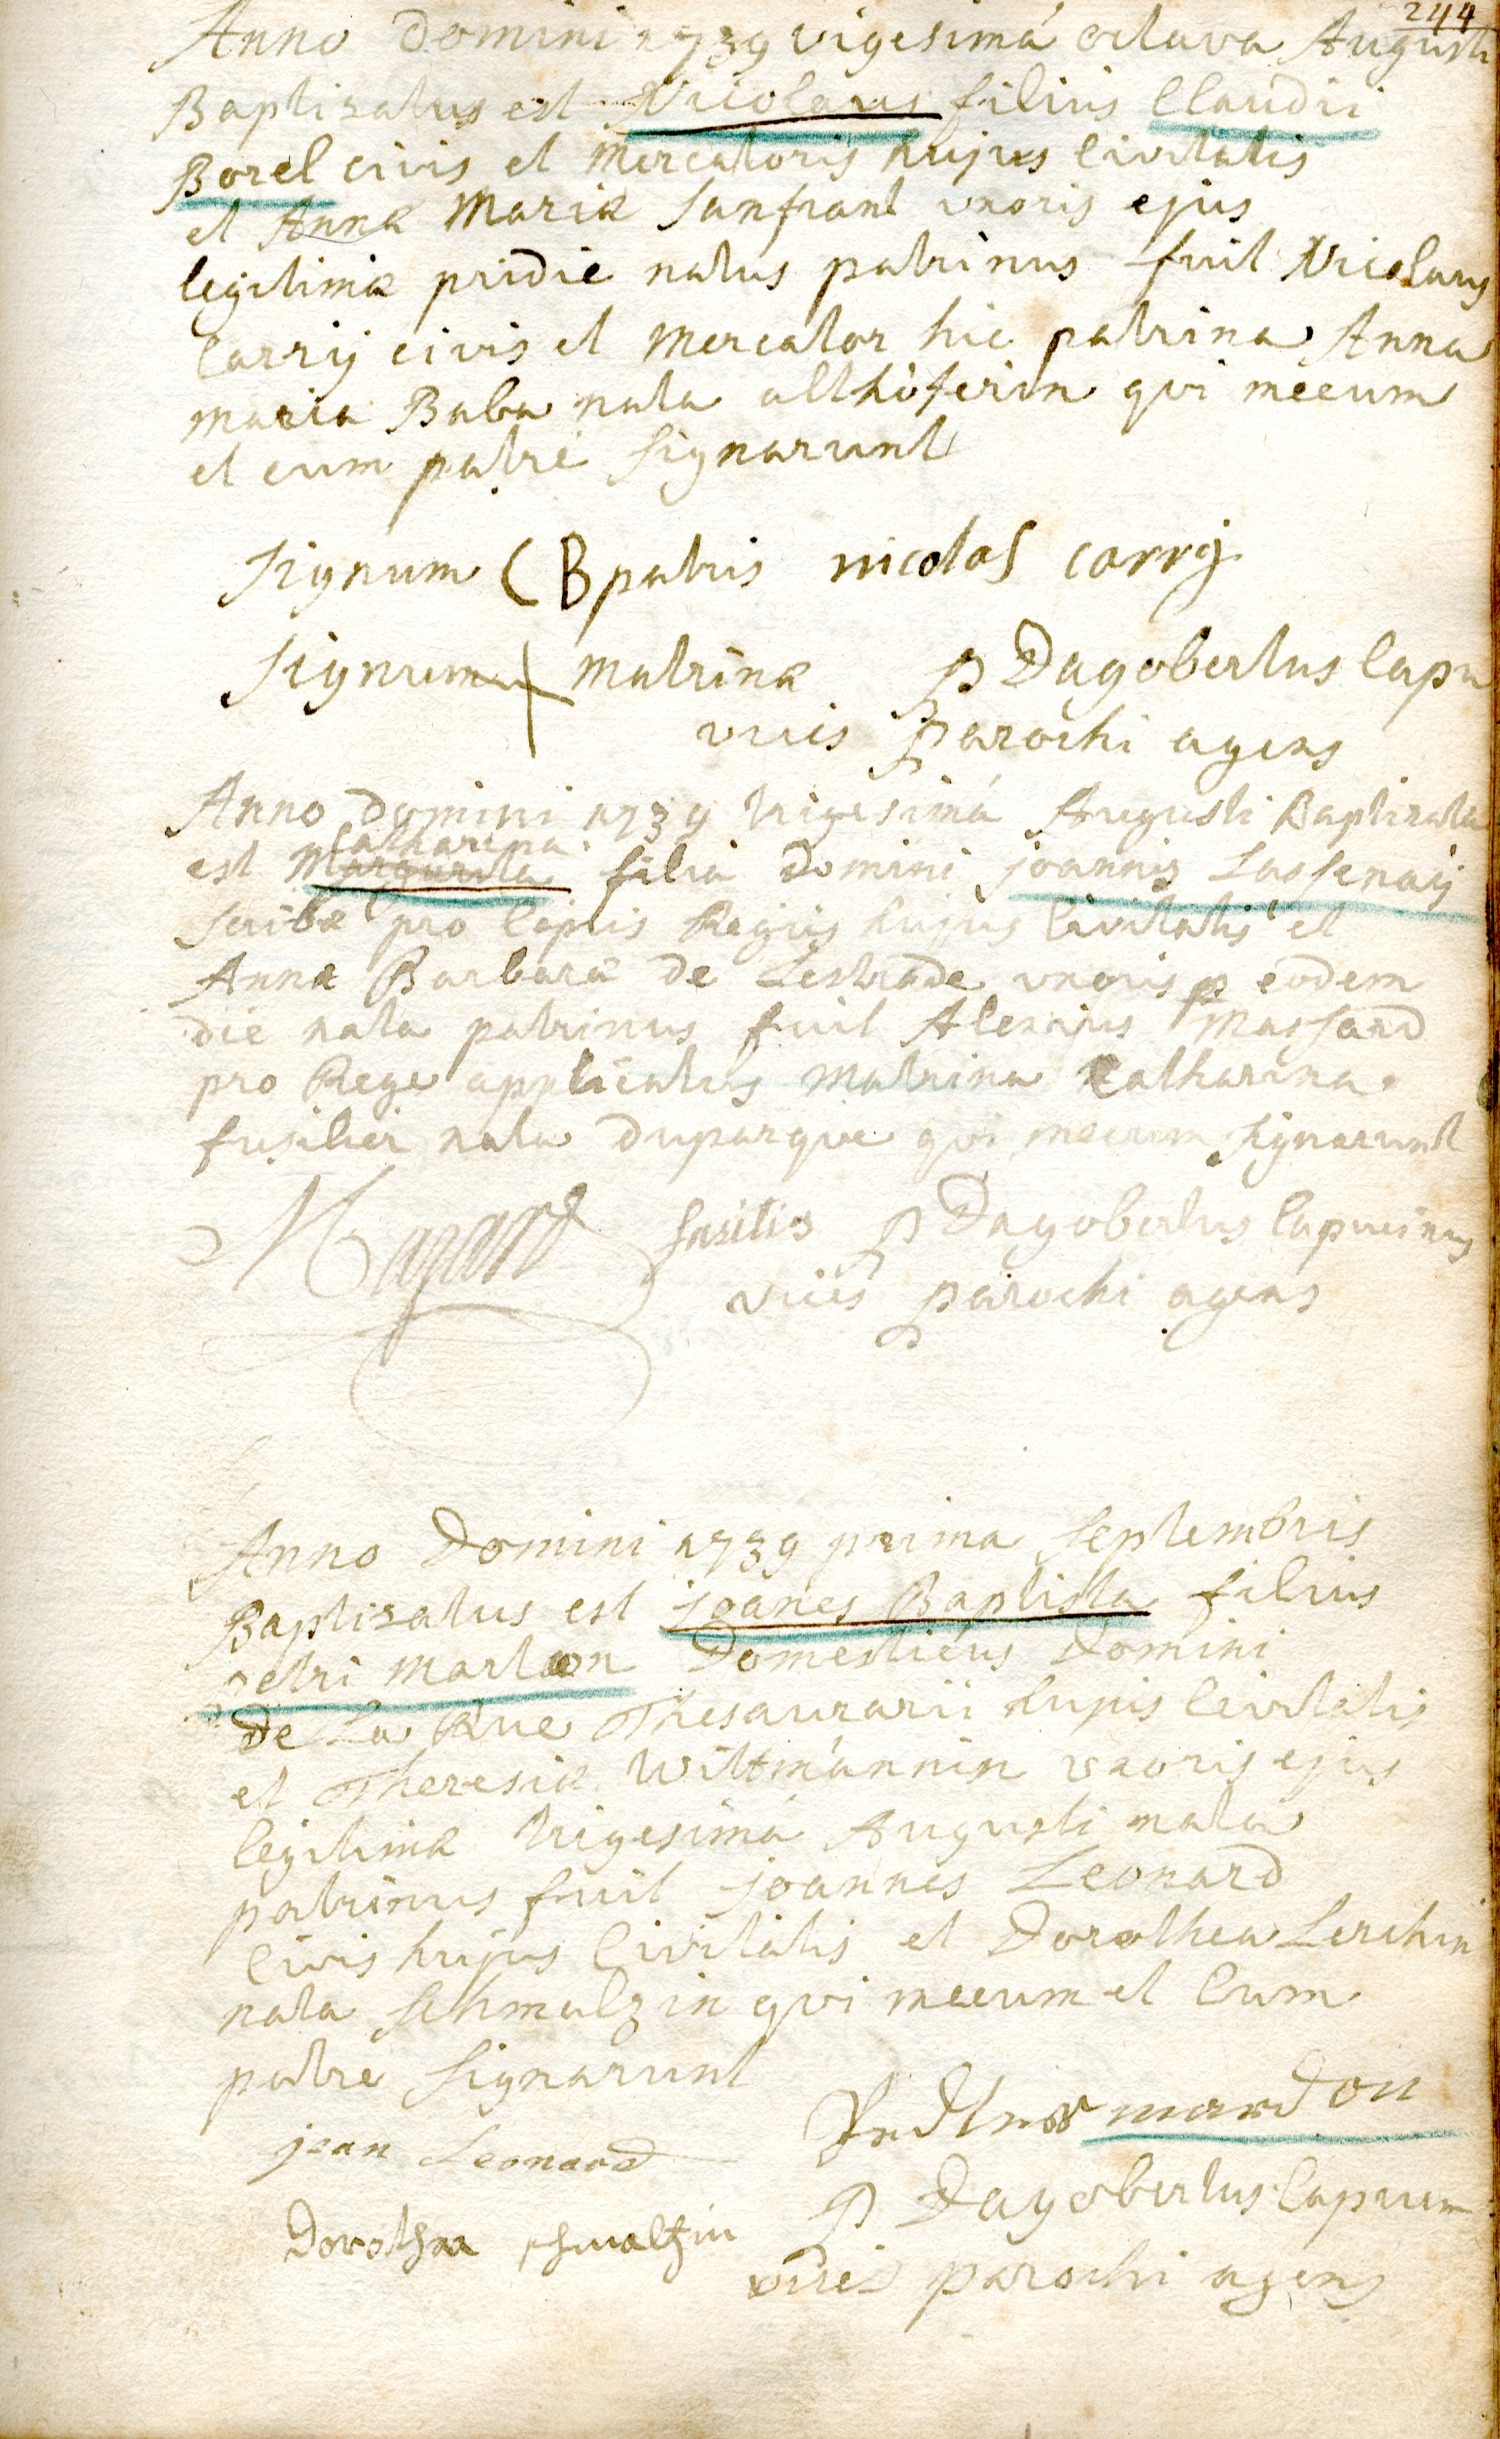 244
Anno Domini 1739 vigesimá octava Augusti
Baptizatus est Nicolaus filius Claudii
Borel civis et Mercatoris hujus Civitatis
et Annæ Mariæ Sanfrant uxoris ejus
legitimæ pridie natus patrinus fuit Nicolaus
Carrij civis et Mercator hic patrina Anna
Maria Baba nata althoferin qui mecum
et cum patre signarunt
Signum C B patris nicolas carrij
Signum + Matrinæ P Dagobertus Capu
vices Parochi agens
Anno Domini 1739 trigesimá Augusti Baptizata
Catharina
est Margarita filia Domini joannis Lassenaij
scribæ pro Regiis hujus Civitatis et
Annæ Barbaræ de Lestrade uxoris eodem
die nata patrinus fuit Alexius Massard
pro Rege applicatus Matrina Catharina
fusilier nata duparque qui mecum signarunt
Mazard P Dagobertus Capucinus
vices parochi agens
Anno Domini 1739 prima Septembris
Baptizatus est joanes Baptista filius
petri Marton Domesticus Domini
De La Rue Thesaurarii hujus Civitatis
et Theresiæ Wittmánnin uxoris ejus
legitimæ trigesimá Augusti nata
patrinus fuit joannes Leonard
Civis hujus Civitatis et Dorothea Lerchin
nata Schmalzin qui mecum et Cum
patre signarunt
mardon
jean Leonard
P Dagobertus Capucin
Dorothea schmaltzin
vices parochi agens